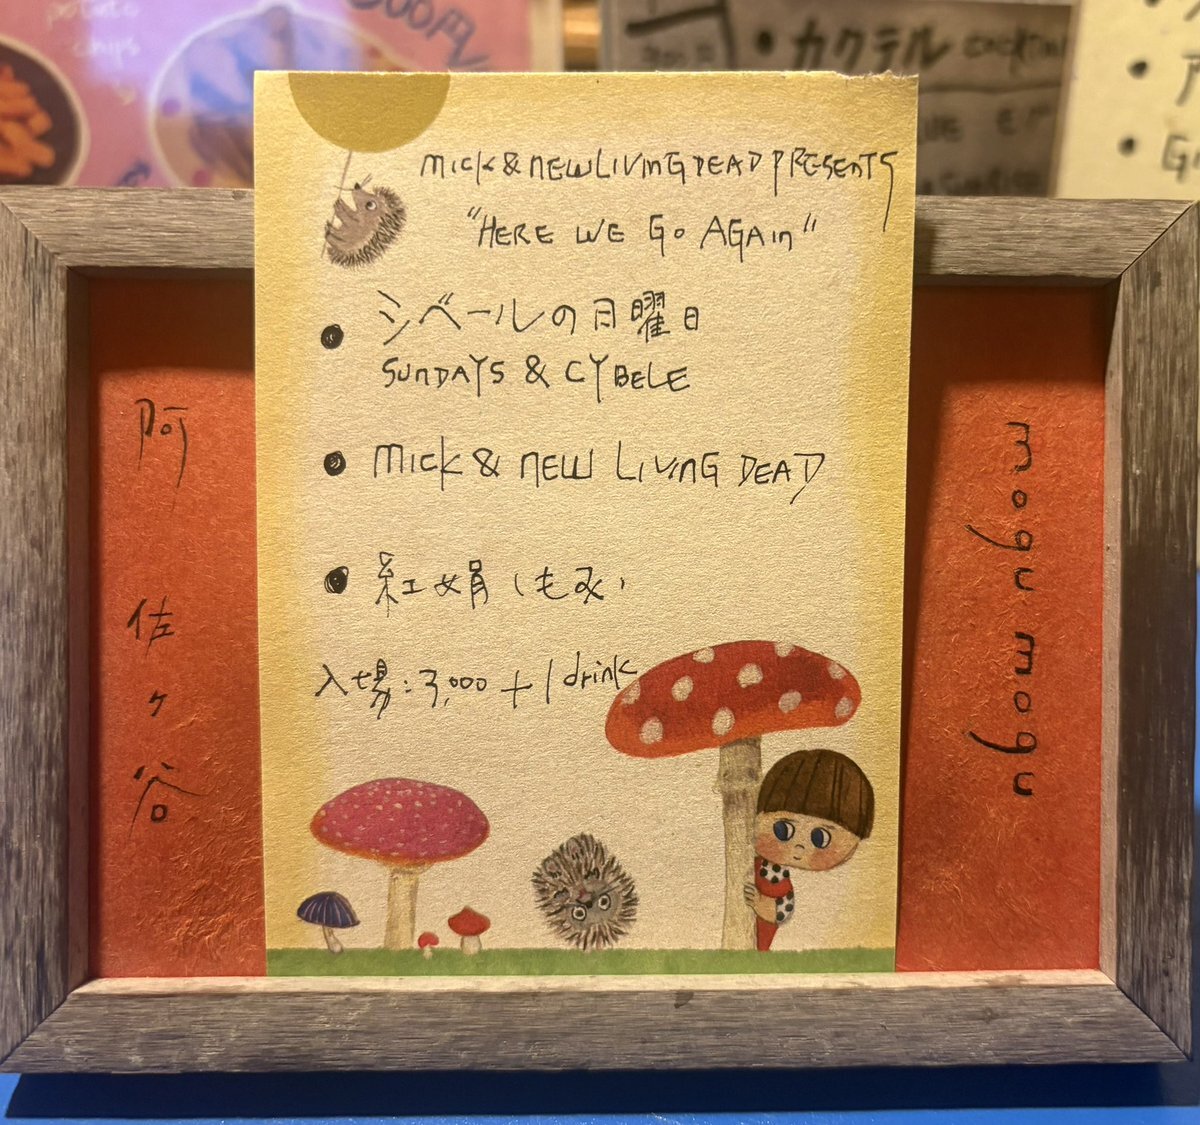 potato
chips
カクテル cocktail
MICK & NEW LIVING DEAD PRESENTS
"HERE WE GO AGAIN"
● シベールの日曜日
SUNDAYS & CYBELE
● MICK & NEW LIVING DEAD
● 紅絹（もみ）
入場:3,000 + 1 drink
阿佐ヶ谷
mogumogu